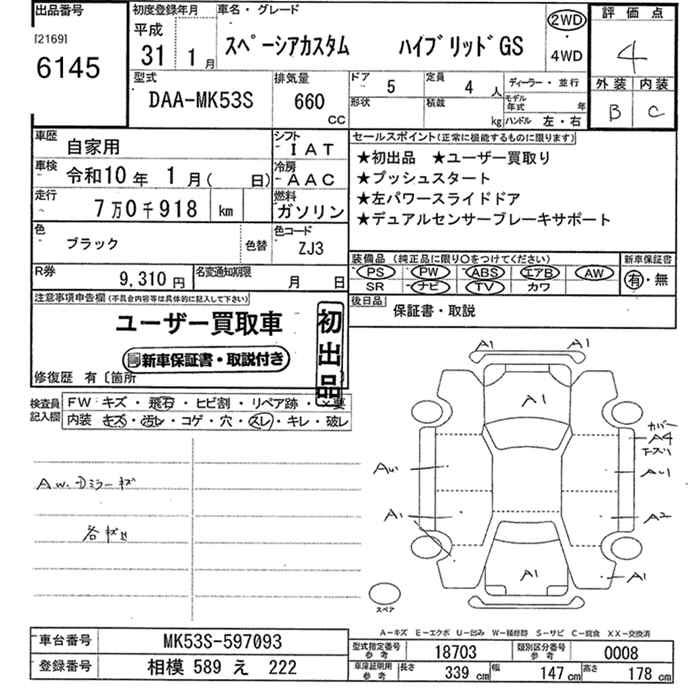 出品番号
[2169]
6145
初度登録年月
平成
31 1 月
車名・グレード
スペーシアカスタム ハイブリッドGS
2WD
・
4WD
評価点
4
外装 内装
B C
型式
DAA-MK53S
排気量
660
CC
ドア 5
定員 4 人
形状
積載 kg
ディーラー・並行
モデル年式 年
ハンドル 左・右
車歴
自家用
シフト
IAT
車検
令和10 年 1 月( 日)
冷房
AAC
走行
7万0千918 km
燃料
ガソリン
色
ブラック
色替
色コード
ZJ3
R券
9,310円
名変通知期限
月 日
セールスポイント(正常に機能するものに限ります)
★初出品 ★ユーザー買取り
★プッシュスタート
★左パワースライドドア
★デュアルセンサーブレーキサポート
装備品 (純正品に限り○をつけてください)
PS PW ABS エアB AW
SR ナビ TV カワ
新車保証書
有・無
後日品
保証書・取説
注意事項申告欄(不具合内容等は具体的に記入して下さい)
ユーザー買取車
新車保証書・取説付き
初出品
修復歴 有〔箇所
検査員記入欄
FW キズ・飛石・ヒビ割・リペア跡・×要
内装 キズ・汚レ・コゲ・穴・スレ・キレ・破レ
AW.Dミラーキズ
各キズ
A1 A1
A1
カバー
A4
A1
A2
A1
A1
スペア
A−キズ E−エクボ U−凹み W−補修跡 S−サビ C−腐食 XX−交換済
車台番号
MK53S-597093
登録番号
相模 589 え 222
型式指定番号
参考
18703
類別区分番号
参考
0008
車庫証明用
参考
長さ 339 cm 幅 147 cm 高さ 178 cm